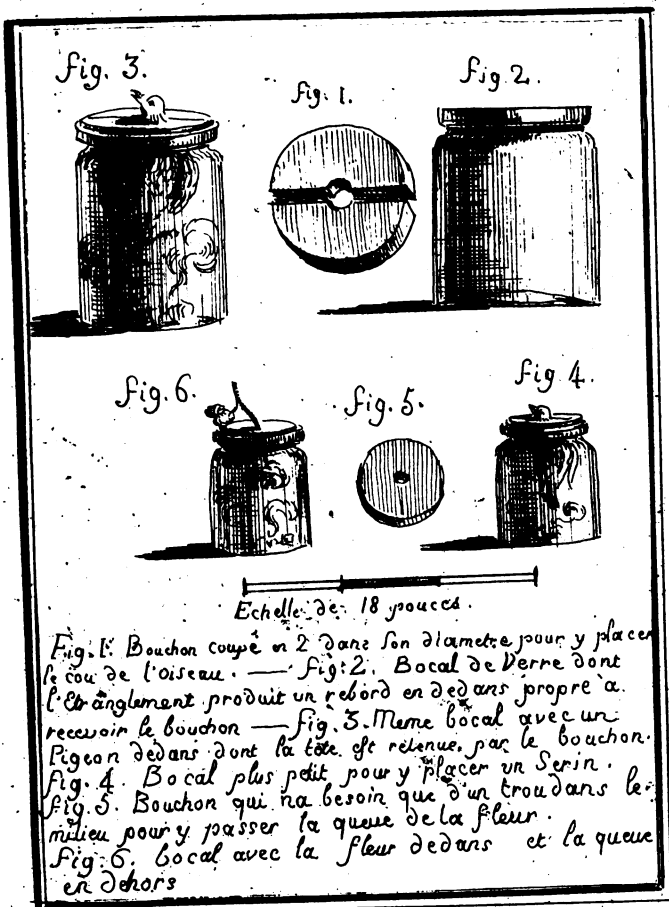 fig. 3.
fig. 1.
fig 2.
fig. 6.
fig. 5.
fig 4.
Echelle de 18 pouces.
Fig. 1. Bouchon coupé en 2 dans son diametre pour y placer
le cou de l'oiseau. — fig. 2. Bocal de Verre dont
l'Etranglement produit un rebord en dedans propre à
recevoir le bouchon — fig. 3. Meme bocal avec un
Pigeon dedans dont la tête est retenue par le bouchon.
fig. 4. Bocal plus petit pour y placer un Serin.
fig. 5. Bouchon qui na besoin que d'un trou dans le
milieu pour y passer la queue de la fleur.
fig. 6. bocal avec la fleur dedans et la queue
en dehors